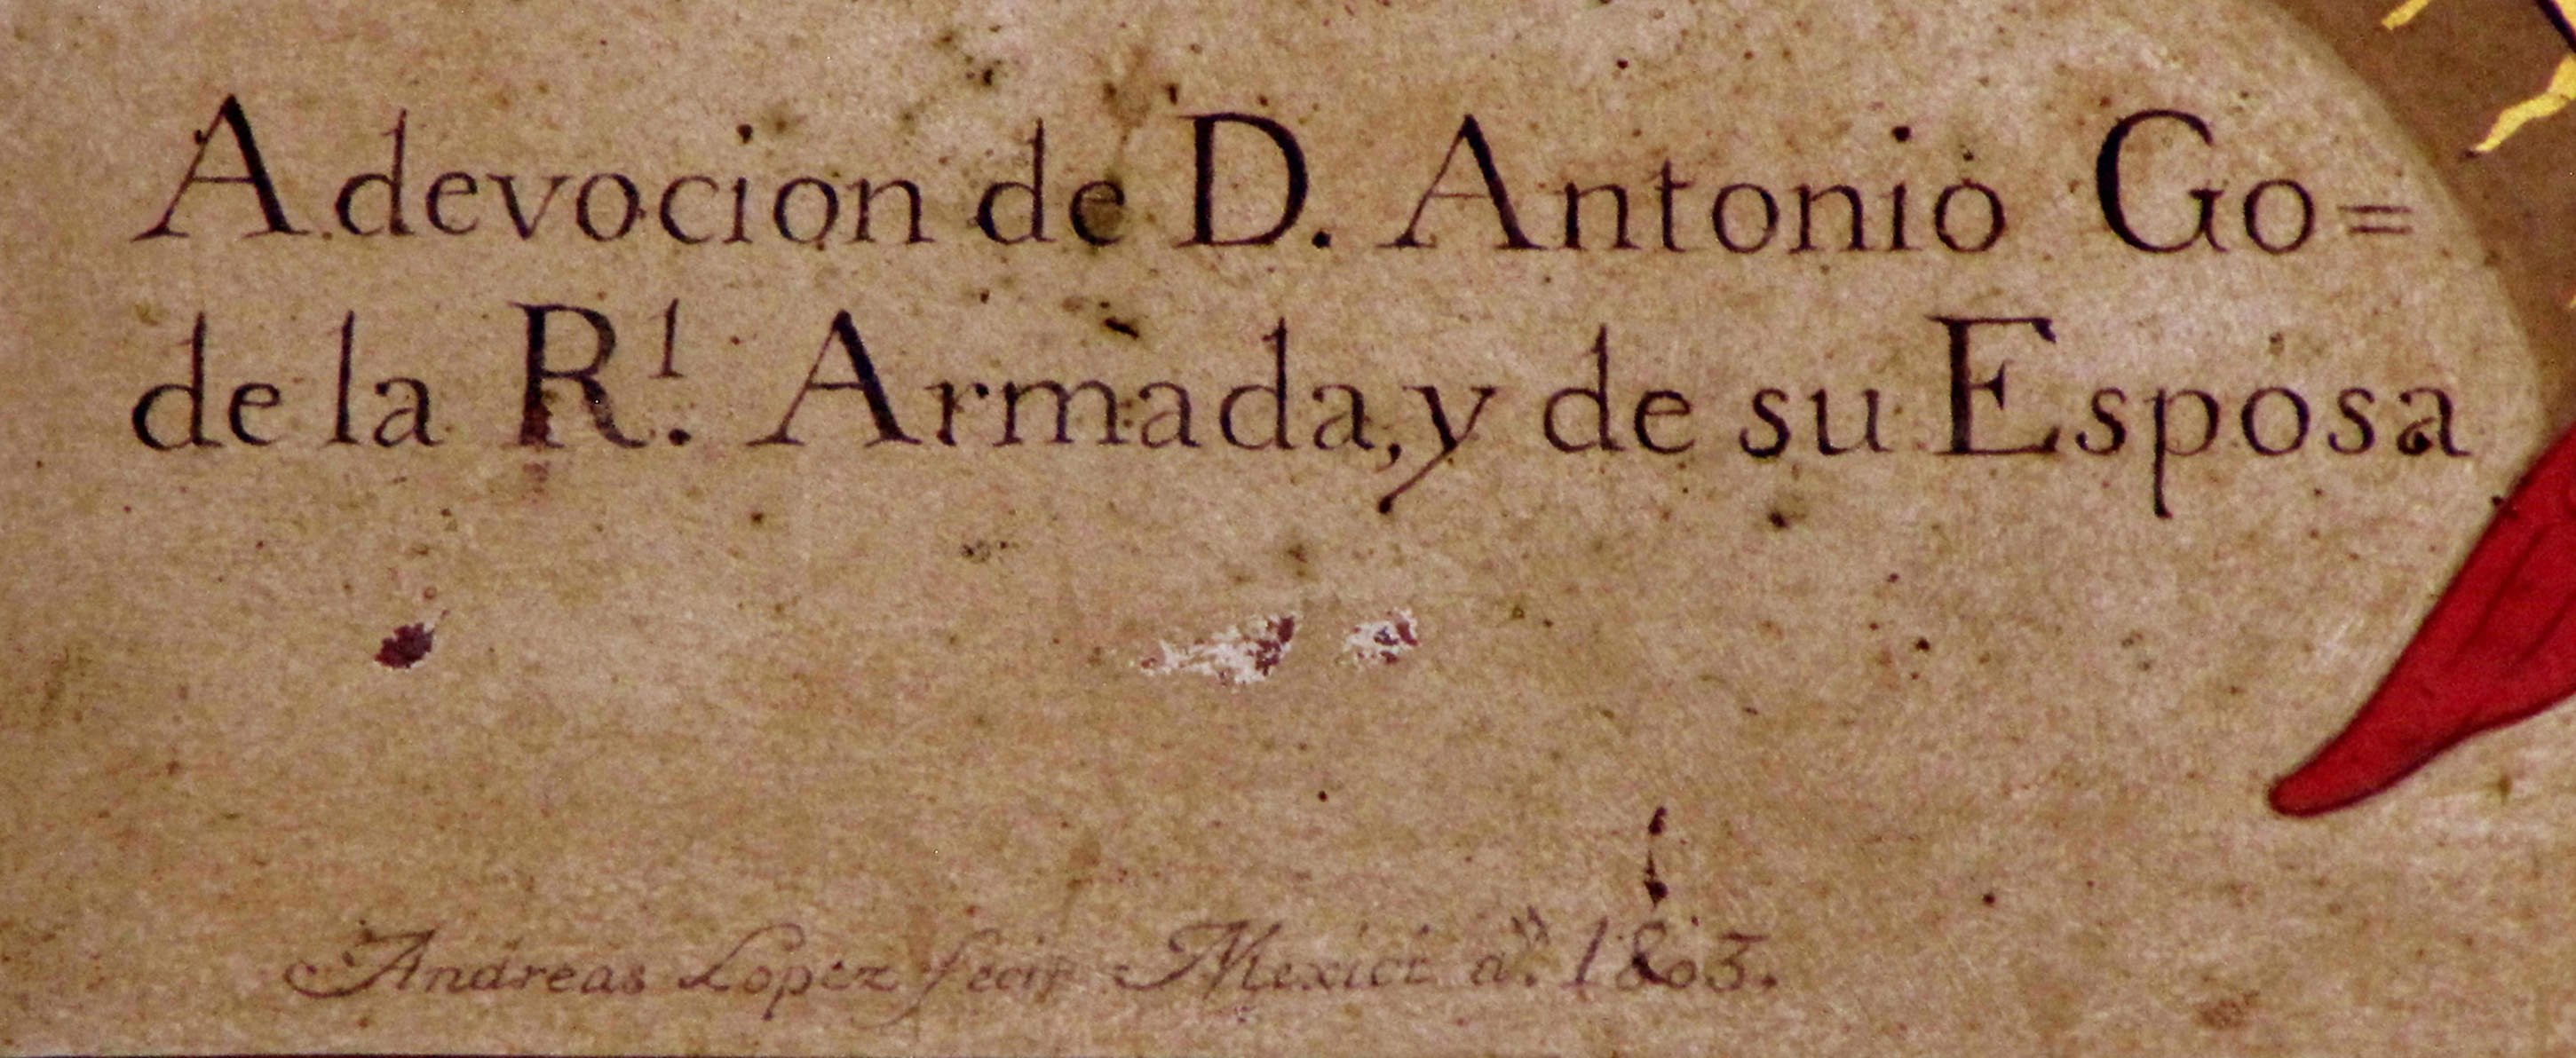 A devocion de D. Antonio Go=
de la R.l Armada, y de su Esposa
Andreas Lopez fecit Mexici a.n 1803.